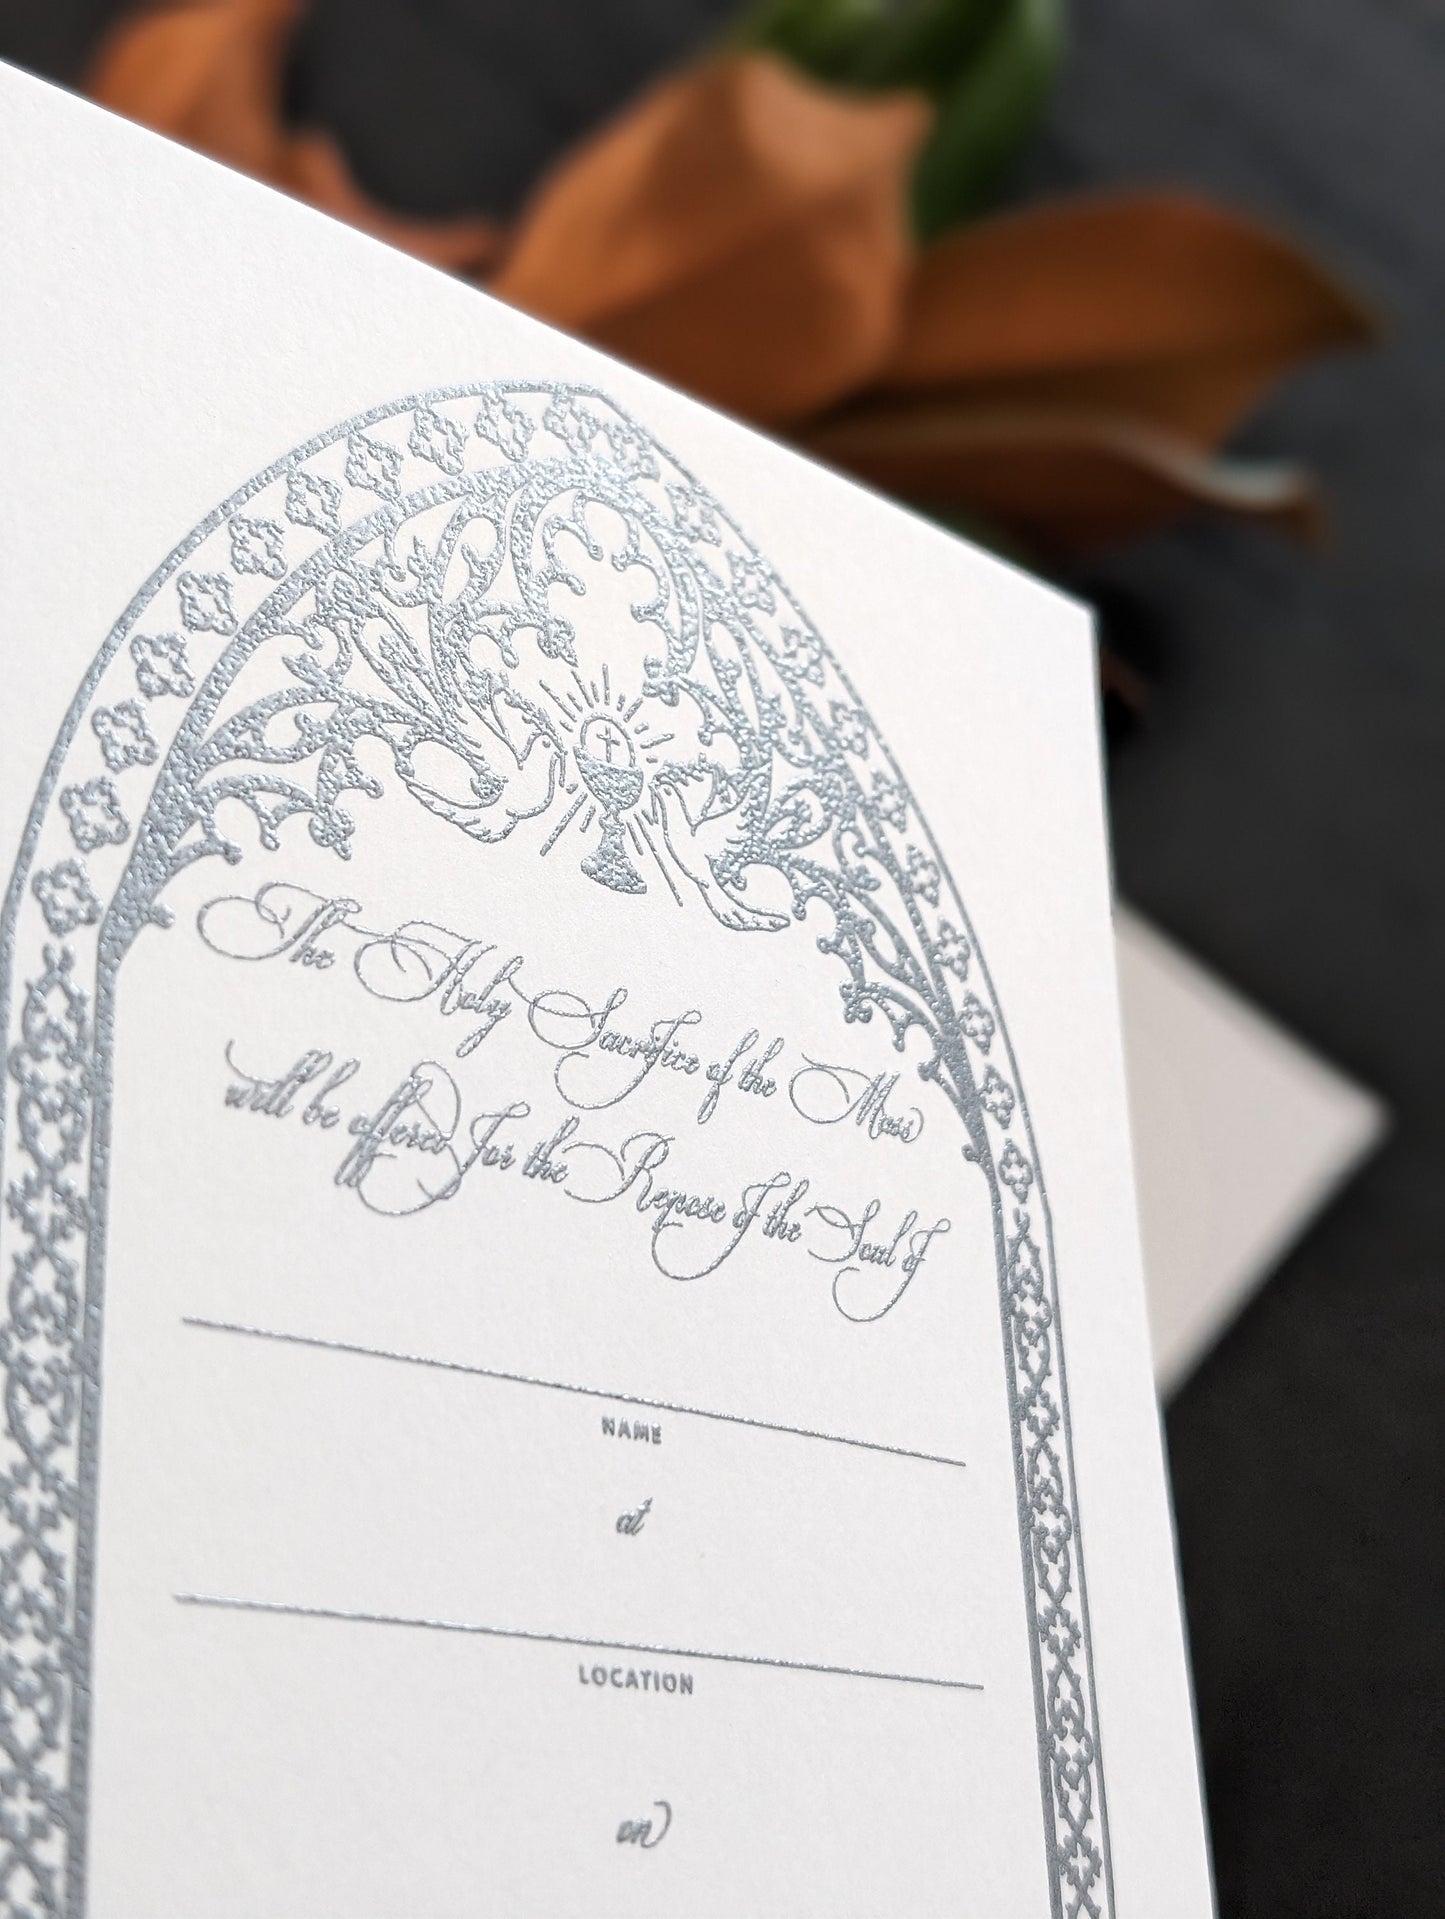 The Holy Sacrifice of the Mass
will be offered for the Repose of the Soul of
NAME
at
LOCATION
on